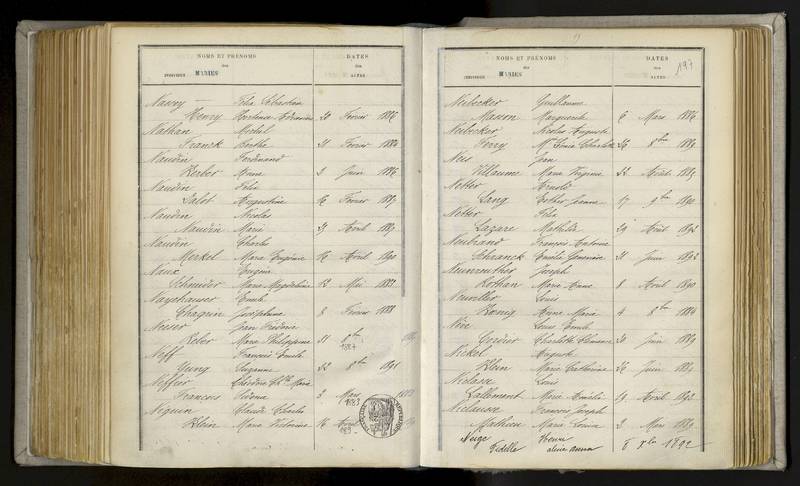 NOMS ET PRÉNOMS
des
MARIÉS
DATES
des
ACTES
Navoy Félix Sébastien
Henry Hortense 20 Février 1886
Nathan Michel
Franck Berthe 21 Février 1886
Naudin Ferdinand
Kerber Anna 2 Juin 1886
Naudin Félix
Jalot Augustine 16 Février 1887
Naudin Nicolas
Naudin Marie 29 Avril 1889
Naudin Charles
Merkel Marie Eugénie 16 Avril 1890
Naux Eugène
Schneider Marie Magdeleine 12 Mai 1883
Nayehauser Emile
Chagrin Joséphine 8 Février 1888
Neeser Jean Frédéric
Reter Marie Philippine 31 8bre 1887
Neff François Emile
Yung Suzanne 22 8bre 1891
Neffeur Théodore Marie
François Sidonie 3 Mars 1883
Négrun Claude Charles
Klein Marie Victorine 16 Avril
NOMS ET PRÉNOMS
des
MARIÉS
DATES
des
ACTES
197
Neibecker Guillaume
Masson Marguerite 6 Mars 1886
Neibecker Auguste
Ferry Charlotte 26 8bre 1889
Neis Jean
Villaume Marie Virginie 22 Août 1885
Netter Arnold
Lang Esther Jeanne 17 9bre 1890
Netter Félix
Lazare Mathilde 29 Août 1892
Neubrand François Antoine
Schranck Emélie Geneviève 21 Juin 1892
Neunreuther Joseph
Rothan Marie Anne 8 Avril 1890
Neuviller Louis
Koenig Anne Marie 4 8bre 1884
Louis Emile
Charlotte Clémence 20 Juin 1889
Nickel Auguste
Klein Marie Catherine 26 Juin 1884
Niclasse Louis
Lallement Marie Amélie 19 Avril 1892
Niclausse François Joseph
Mathieu Marie Louise 2 Mars 1889
Neige
Fidelle aline anna 8 Xbre 1892